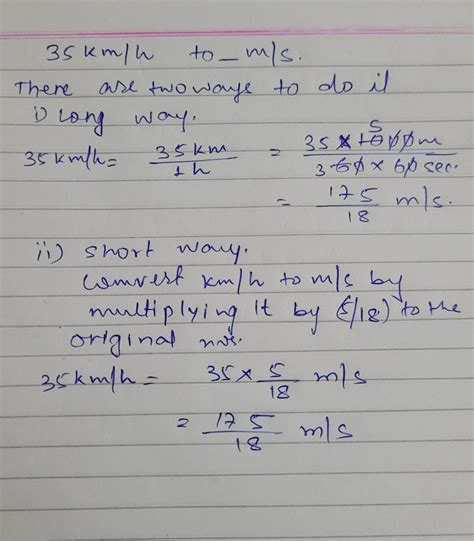 35 km/h to _ m/s.
There are two ways to do it
i) Long way.
35 km/h = 35 km / 1 h = 35 × 1000 m / 60 × 60 sec. 5 3
= 175 / 18 m/s.
ii) short way.
Convert km/h to m/s by
multiplying it by (5/18) to the
original no's.
35 km/h = 35 × 5/18 m/s
= 175 / 18 m/s